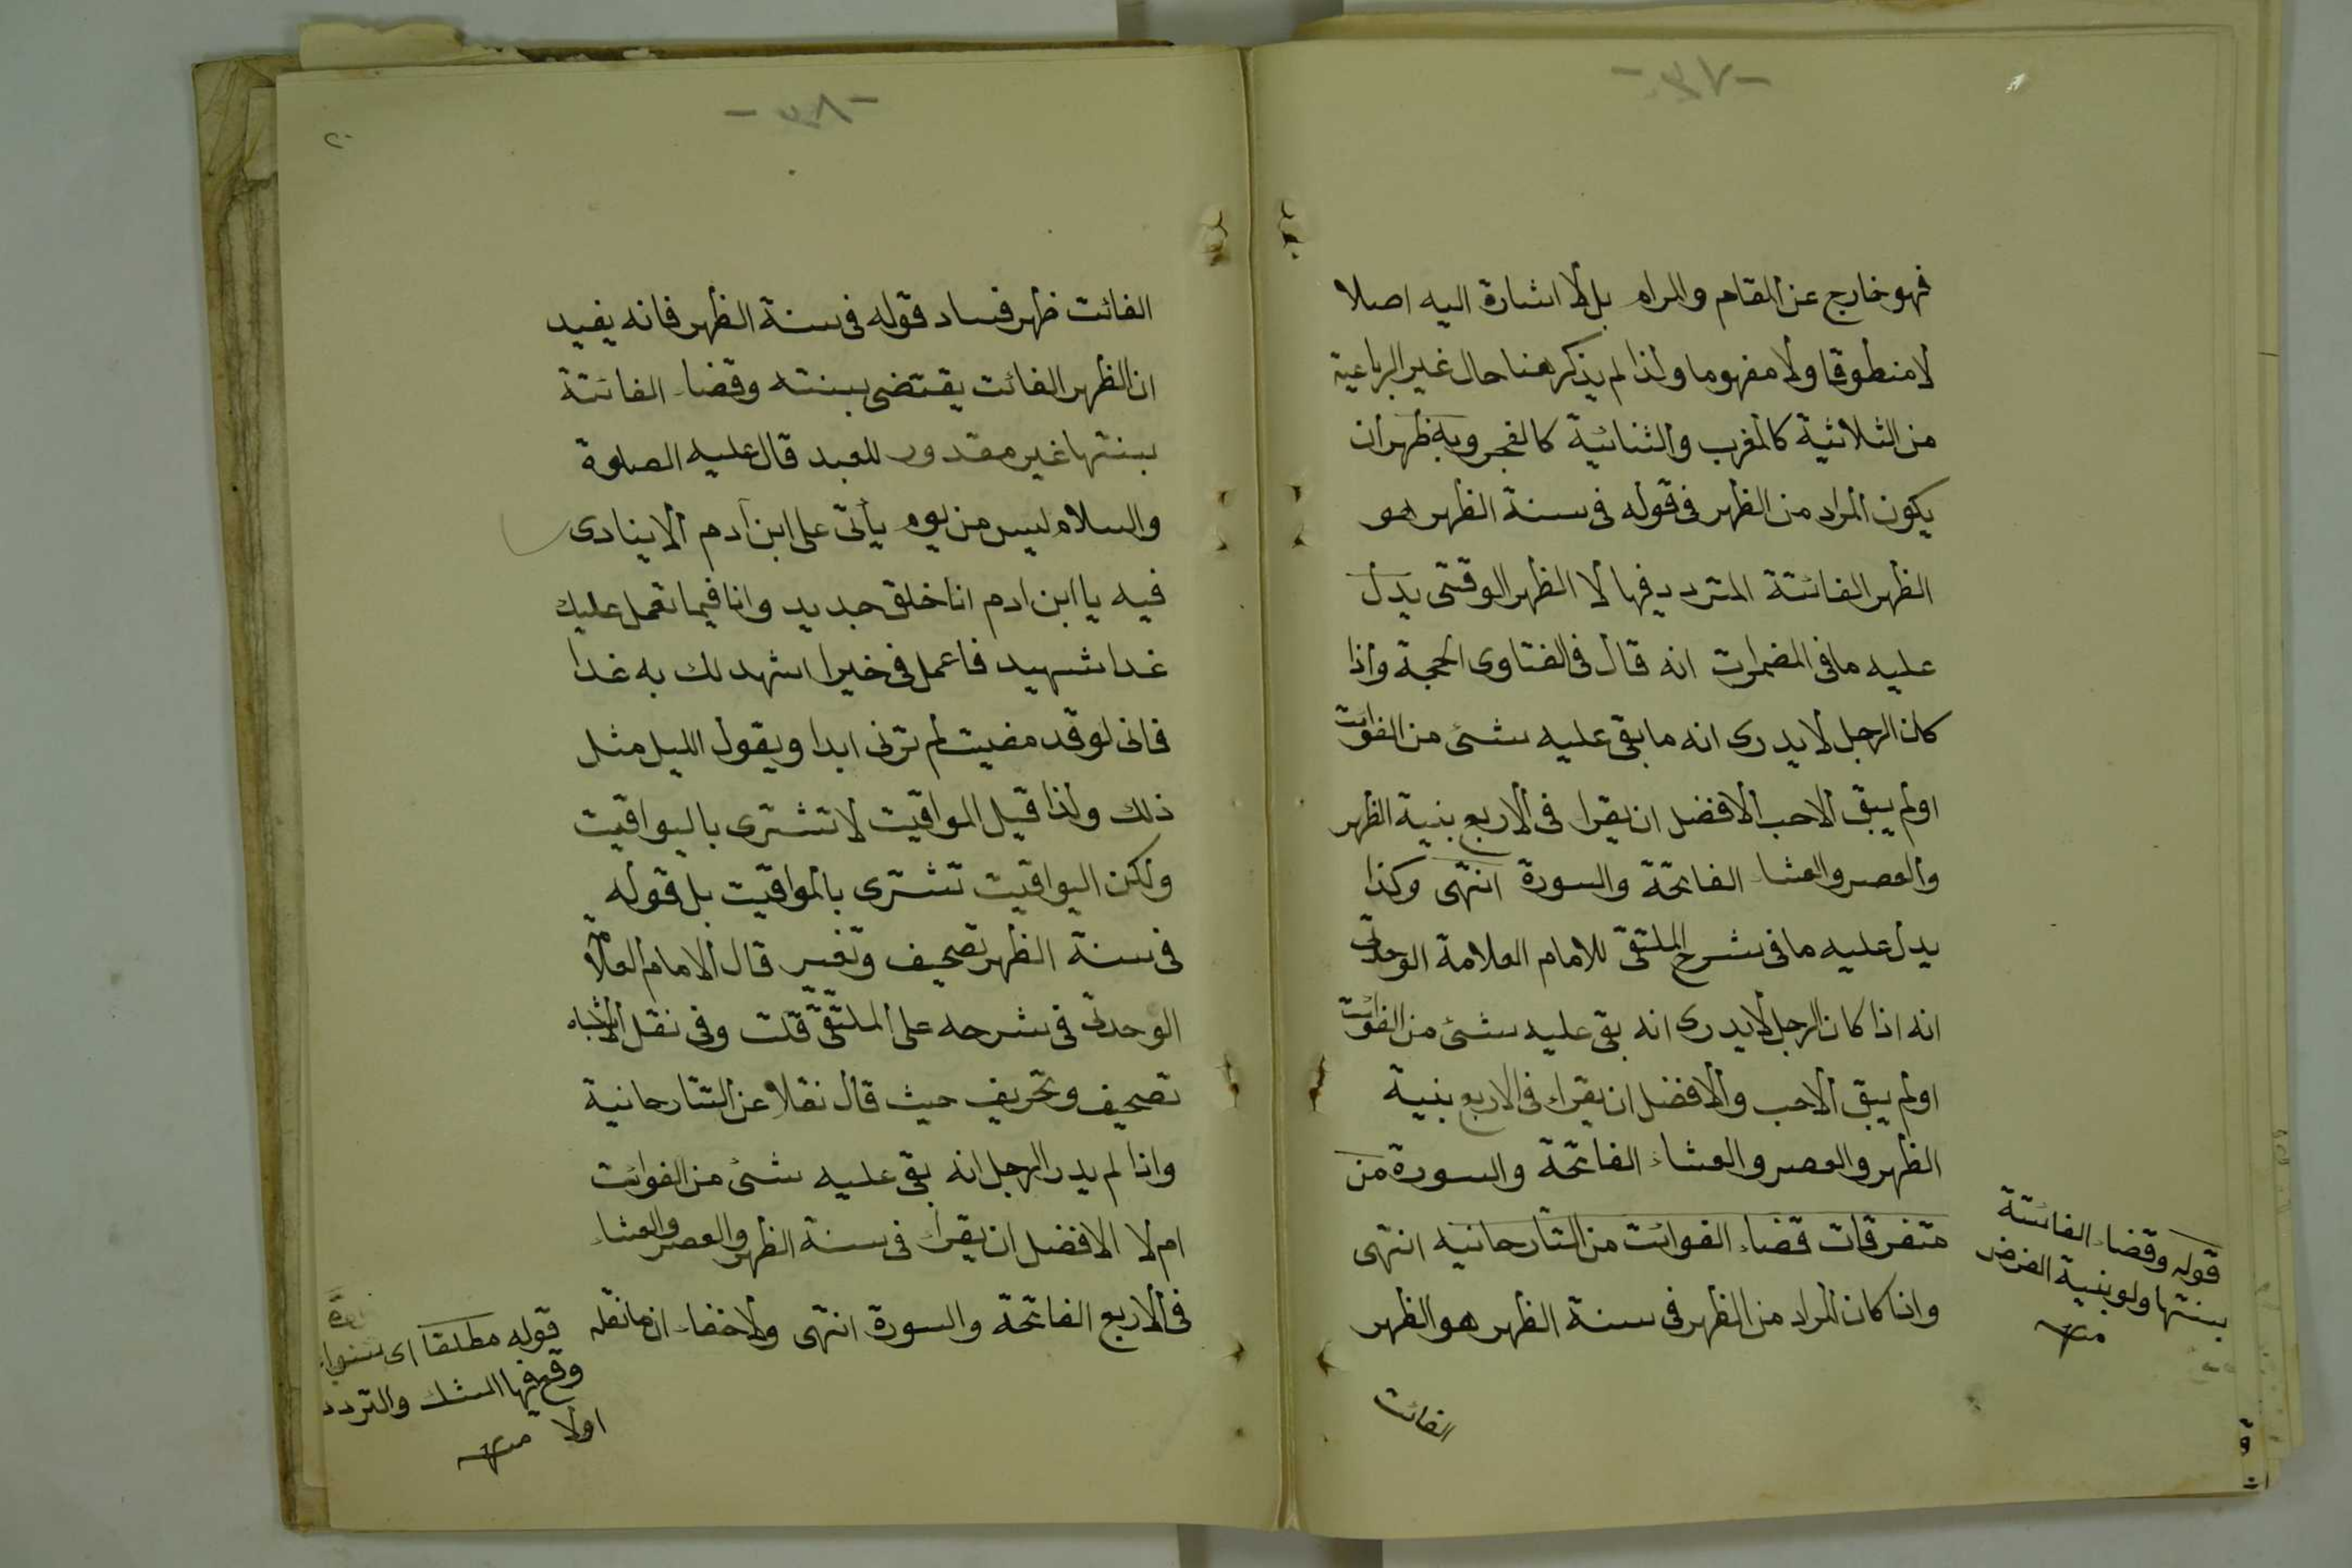 -٣٧-
فهو خارج عن المقام والمرام بل لا اشارة اليه اصلا
لا منطوقا ولا مفهوما ولذا لم يذكر هنا حال غير الرباعية
من الثلاثية كالمغرب والثنائية كالفجر وبه ظهر ان
يكون المراد من الظهر فى قوله فى سنة الظهر هو
الظهر الفائتة المتردد فيها لا الظهر الوقتى يدل
عليه ما فى المضمرات انه قال فى الفتاوى الحجة واذا
كان الرجل لا يدرى انه ما بقى عليه شئ من الفوائت
او لم يبق الاحب الافضل ان يقرا فى الاربع بنية الظهر
والعصر والعشاء الفاتحة والسورة انتهى وكذا
يدل عليه ما فى شرح الملتقى للامام العلامة الوحدتى
انه اذا كان الرجل لا يدرى انه بقى عليه شئ من الفوائت
او لم يبق الاحب والافضل ان يقراء فى الاربع بنية
الظهر والعصر والعشاء الفاتحة والسورة من
متفرقات قضاء الفوائت من التتارحانيه انتهى
واذا كان المراد من الظهر فى سنة الظهر هو الظهر
الفائت
قوله وقضاء الفائتة
بسنتها ولو بنية الفرض
منه
-٣٨-
٢٠
الفائت ظهر فساد قوله فى سنة الظهر فانه يفيد
ان الظهر الفائت يقتضى بسنته وقضاء الفائتة
بسنتها غير مقدور للعبد قال عليه الصلوة
والسلام ليس من يوم يأتى على ابن آدم الا ينادى
فيه يا ابن ادم انا خلق جديد وانا فيما تعمل عليك
غدا شهيد فاعمل فى خيرا اشهد لك به غدا
فانى لو قد مضيت لم ترنى ابدا ويقول الليل مثل
ذلك ولذا قيل المواقيت لا تشترى باليواقيت
ولكن اليواقيت تشترى بالمواقيت بل قوله
فى سنة الظهر تصحيف وتغيير قال الامام العلامة
الوحدتى فى شرحه على الملتقى قلت وفى نقل الاشباه
تصحيف وتحريف حيث قال نقلا عن التتارحانية
واذا لم يدر الرجل انه بقى عليه شئ من الفوائت
ام لا الافضل ان يقراء فى سنة الظهر والعصر والعشاء
فى الاربع الفاتحة والسورة انتهى ولا خفاء ان ما نقله
قوله مطلقا اى سواء
وقع فيها الشك والتردد
اولا منه